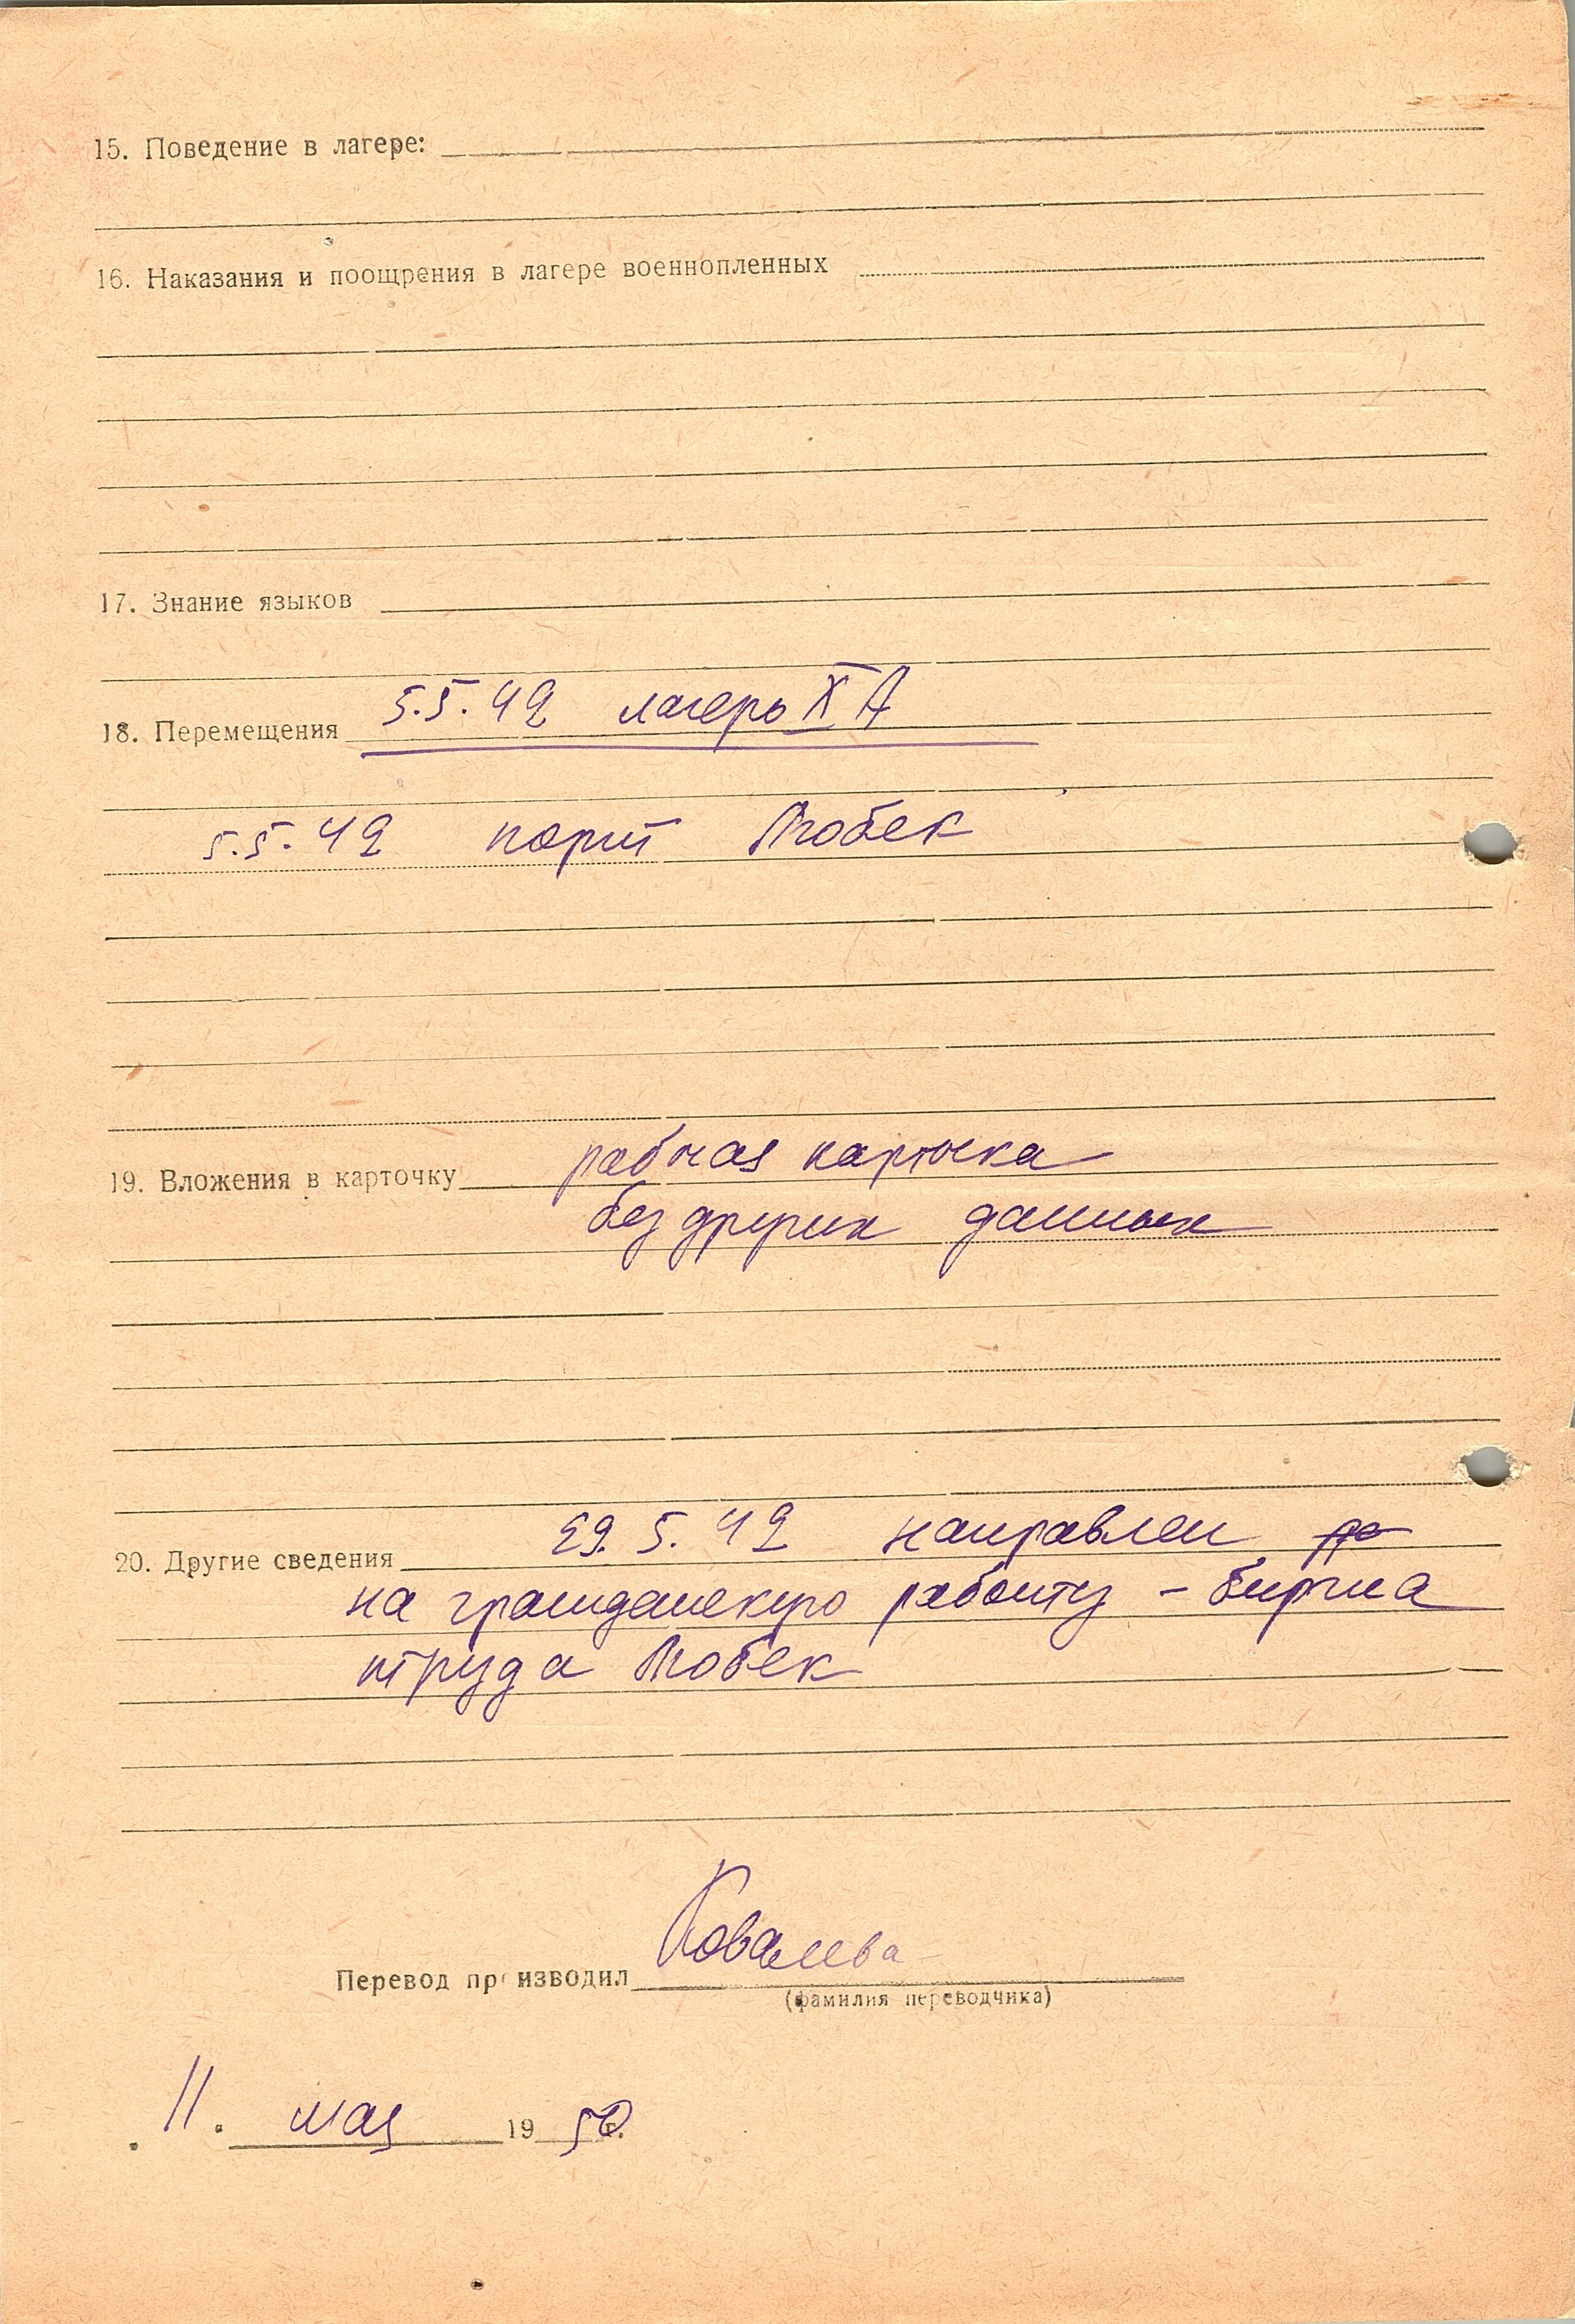 15. Поведение в лагере:
16. Наказания и поощрения в лагере военнопленных
17. Знание языков
18. Перемещения 5.5.42 лагерь X А
5.5.42 порт Любек
19. Вложения в карточку рабочая карточка
без других данных
20. Другие сведения 29.5.42 направлен
на гражданскую работу - биржа
труда Любек
Перевод производил Ковалева
(фамилия переводчика)
11. мая 1950 г.